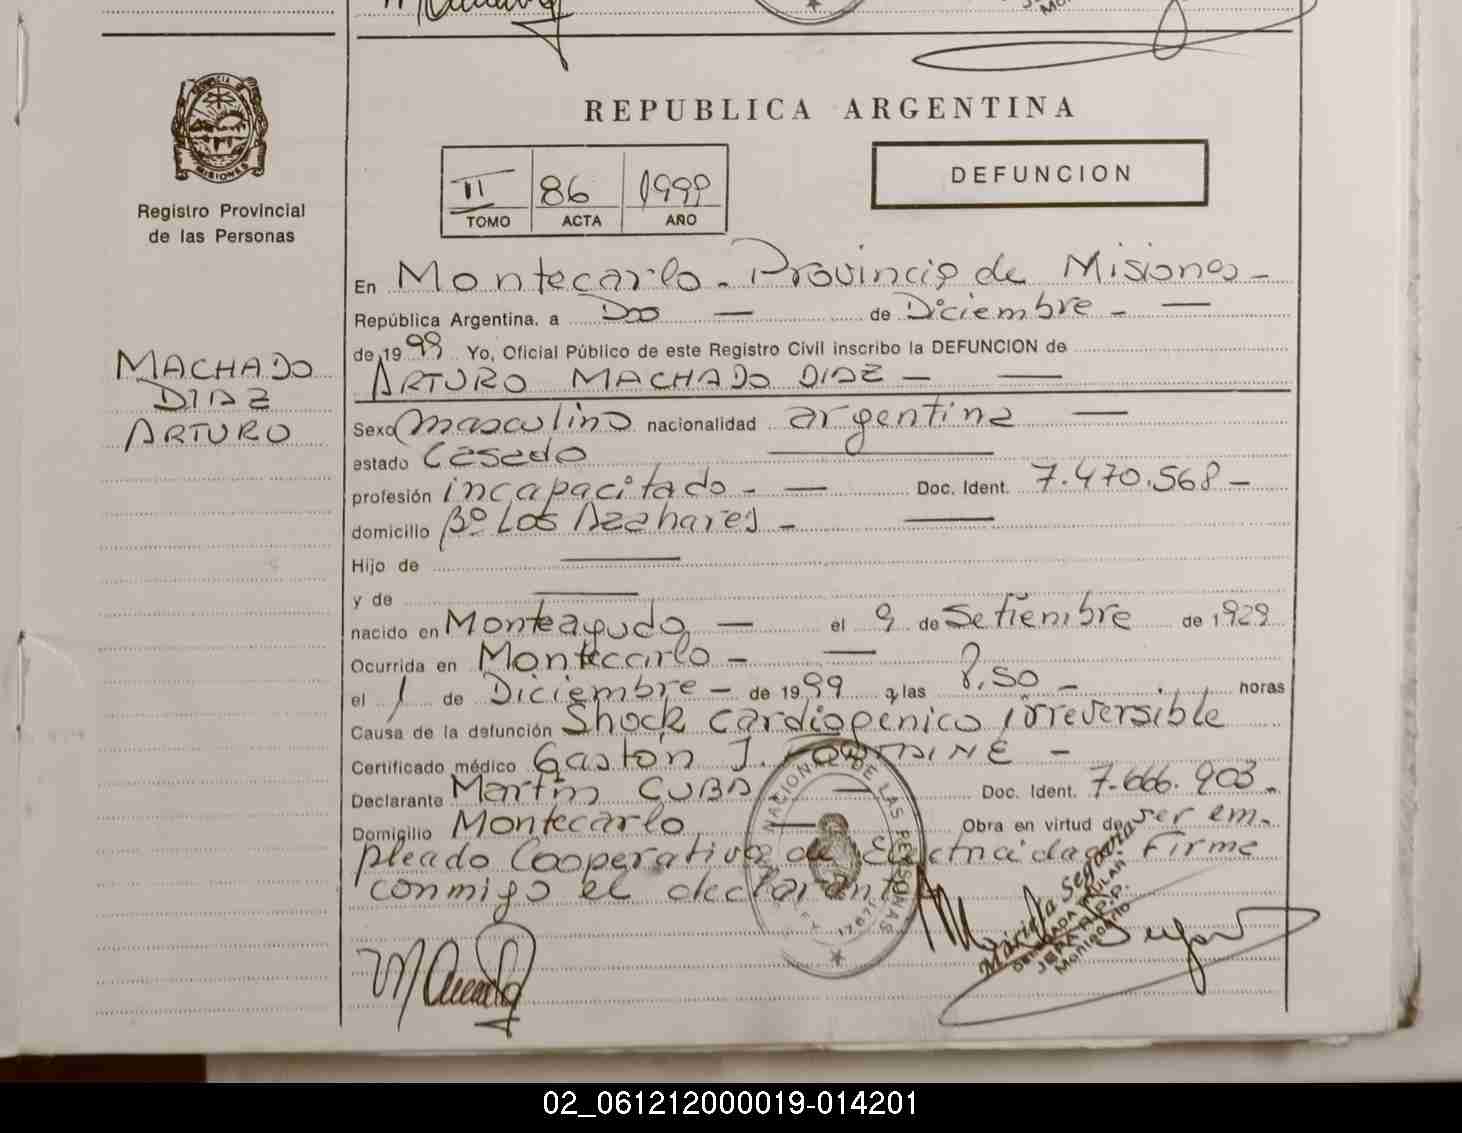 PROVINCIA DE
MISIONES
Registro Provincial
de las Personas
MACHADO
DIAZ
ARTURO
REPUBLICA ARGENTINA
II 86 1999
TOMO ACTA AÑO
DEFUNCION
En Montecarlo - Provincia de Misiones -
República Argentina, a Dos — de Diciembre - —
de 1999 Yo, Oficial Público de este Registro Civil inscribo la DEFUNCION de
ARTURO MACHADO DIAZ - —
Sexo masculino nacionalidad argentina —
estado Casado —
profesión incapacitado - — Doc. Ident. 7.470.568 -
domicilio Bº Los Azahares - —
Hijo de —
y de —
nacido en Monteagudo — el 9 de Setiembre de 1929
Ocurrida en Montecarlo - —
el 1 de Diciembre - de 1999 a las 8,50 - horas
Causa de la defunción Shock Cardiogenico irreversible
Certificado médico Gastón J. -
Declarante Martin CUBA — Doc. Ident. 7.666.903 -
Domicilio Montecarlo — Obra en virtud de ser em-
pleado Cooperativa de Electricidad. Firma
conmigo el declarante
NACIONAL DE LAS PERSONAS
Mariela Segovia
DELEGADA TITULAR
02_061212000019-014201